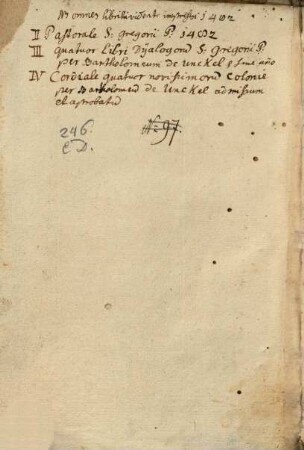 NB omnes libri impressi 1482
II Pastorale S: Gregorii P. 1482
III quatuor Libri Dijalogoru S. Gregorii P.
per Bartholomeum De Unckel
IV Cordiale quatuor novissimoru Colonie
per Bartholomeu de Unckel admissum
et aprobatu
246.
E. D.
N: 97.